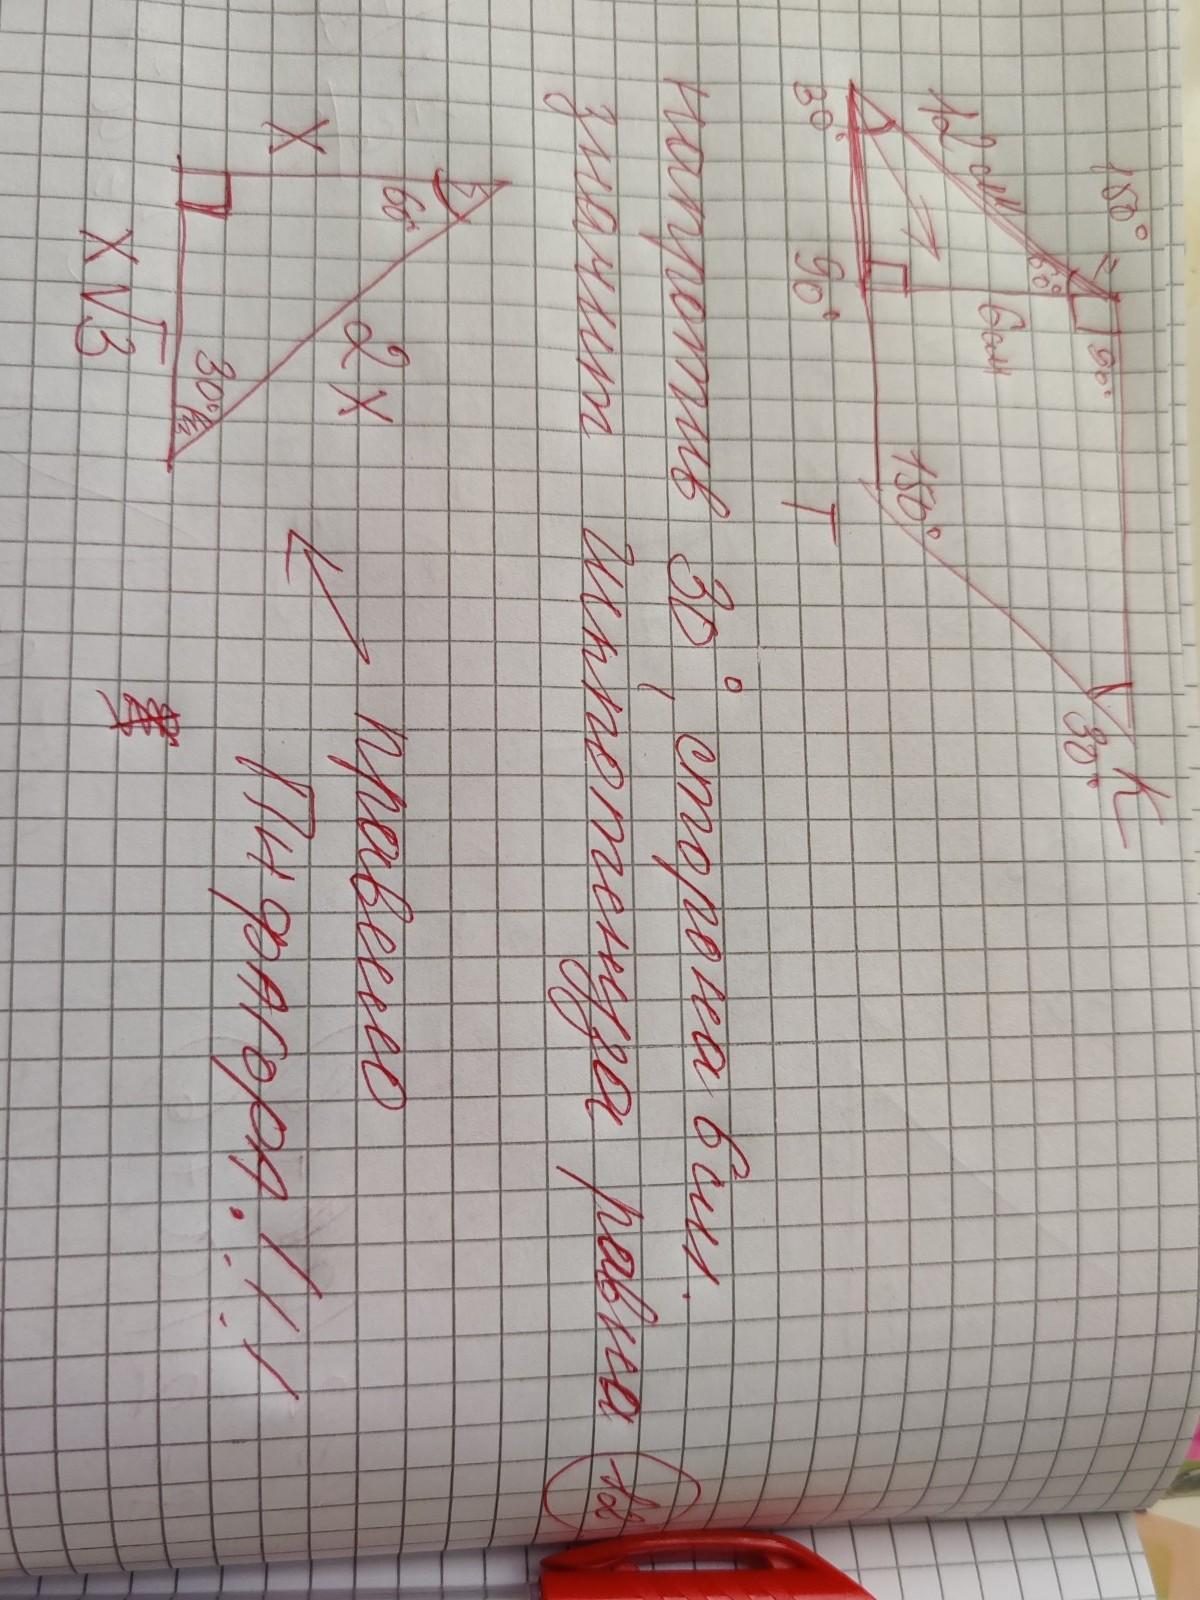 150°
90°
K
12 см
60°
6 см
30°
30°
90°
150°
T
напротив 30°, сторона 6см.
значит гипотенуза равна 12
60°
X
2X
правило
30°
Пифагора!!!
X√3